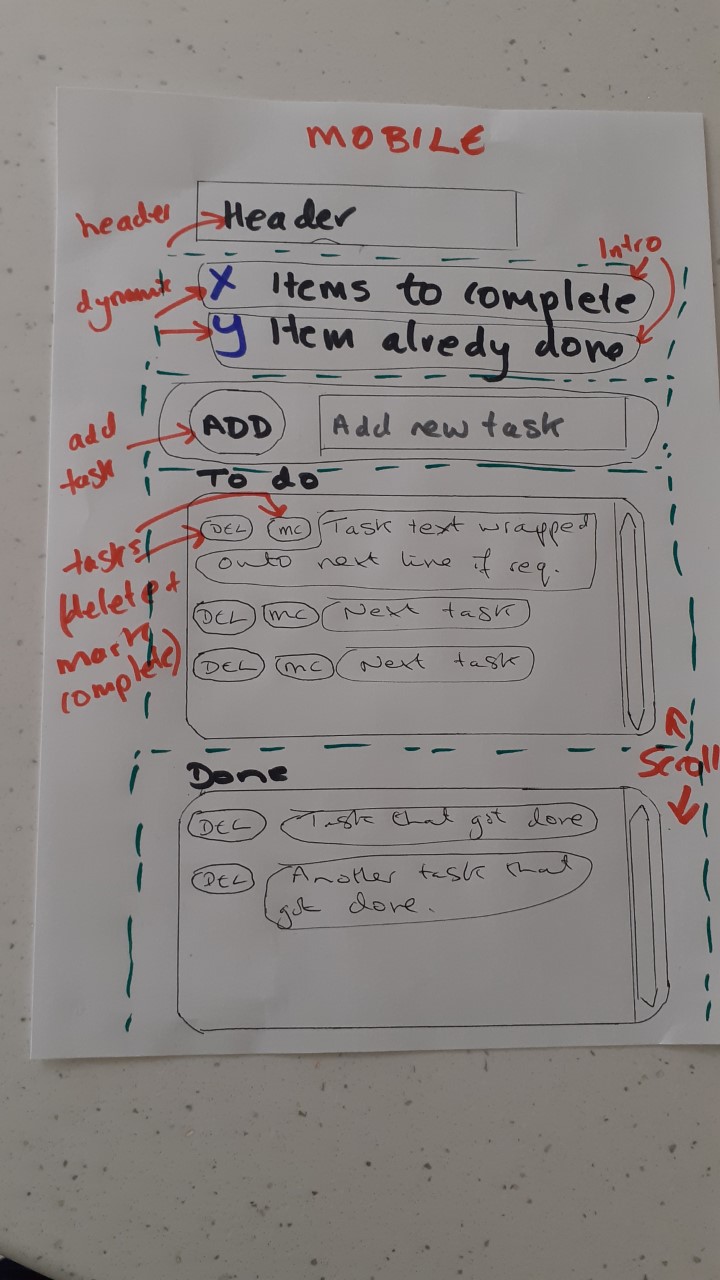 MOBILE
header
Header
Intro
dynamic
X Items to complete
y Item alredy done
add
task
ADD
Add new task
To do
tasks
(delete +
mark
complete)
DEL
MC
Task text wrapped
onto next line if req.
DEL
MC
Next task
DEL
MC
Next task
Scroll
Done
DEL
Task that got done
DEL
Another task that
got done.